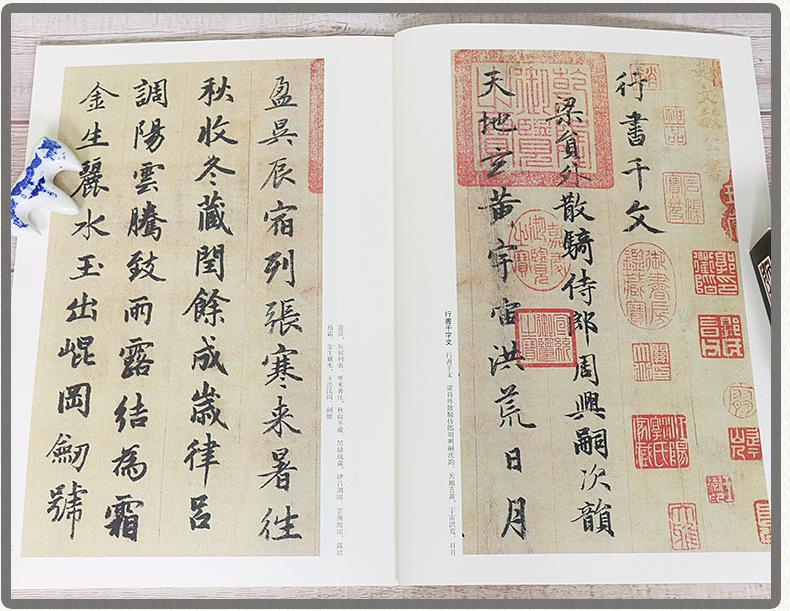 行書千文
梁員外散騎侍郎周興嗣次韻
天地玄黃宇宙洪荒日月
神品
御書房鑑藏寶
乾隆御覽之寶
嘉慶御覽之寶
宣統御覽之寶
行書千字文 行書千文 梁員外散騎侍郎周興嗣次韻 天地玄黃，宇宙洪荒。日月
盈昃辰宿列張寒来暑往
秋收冬藏閏餘成歲律呂
調陽雲騰致雨露結為霜
金生麗水玉出崐岡劒號
盈昃，辰宿列張。寒來暑往，秋收冬藏。閏餘成歲，律呂調陽。雲騰致雨，露結
爲霜。金生麗水，玉出崐岡。劍號